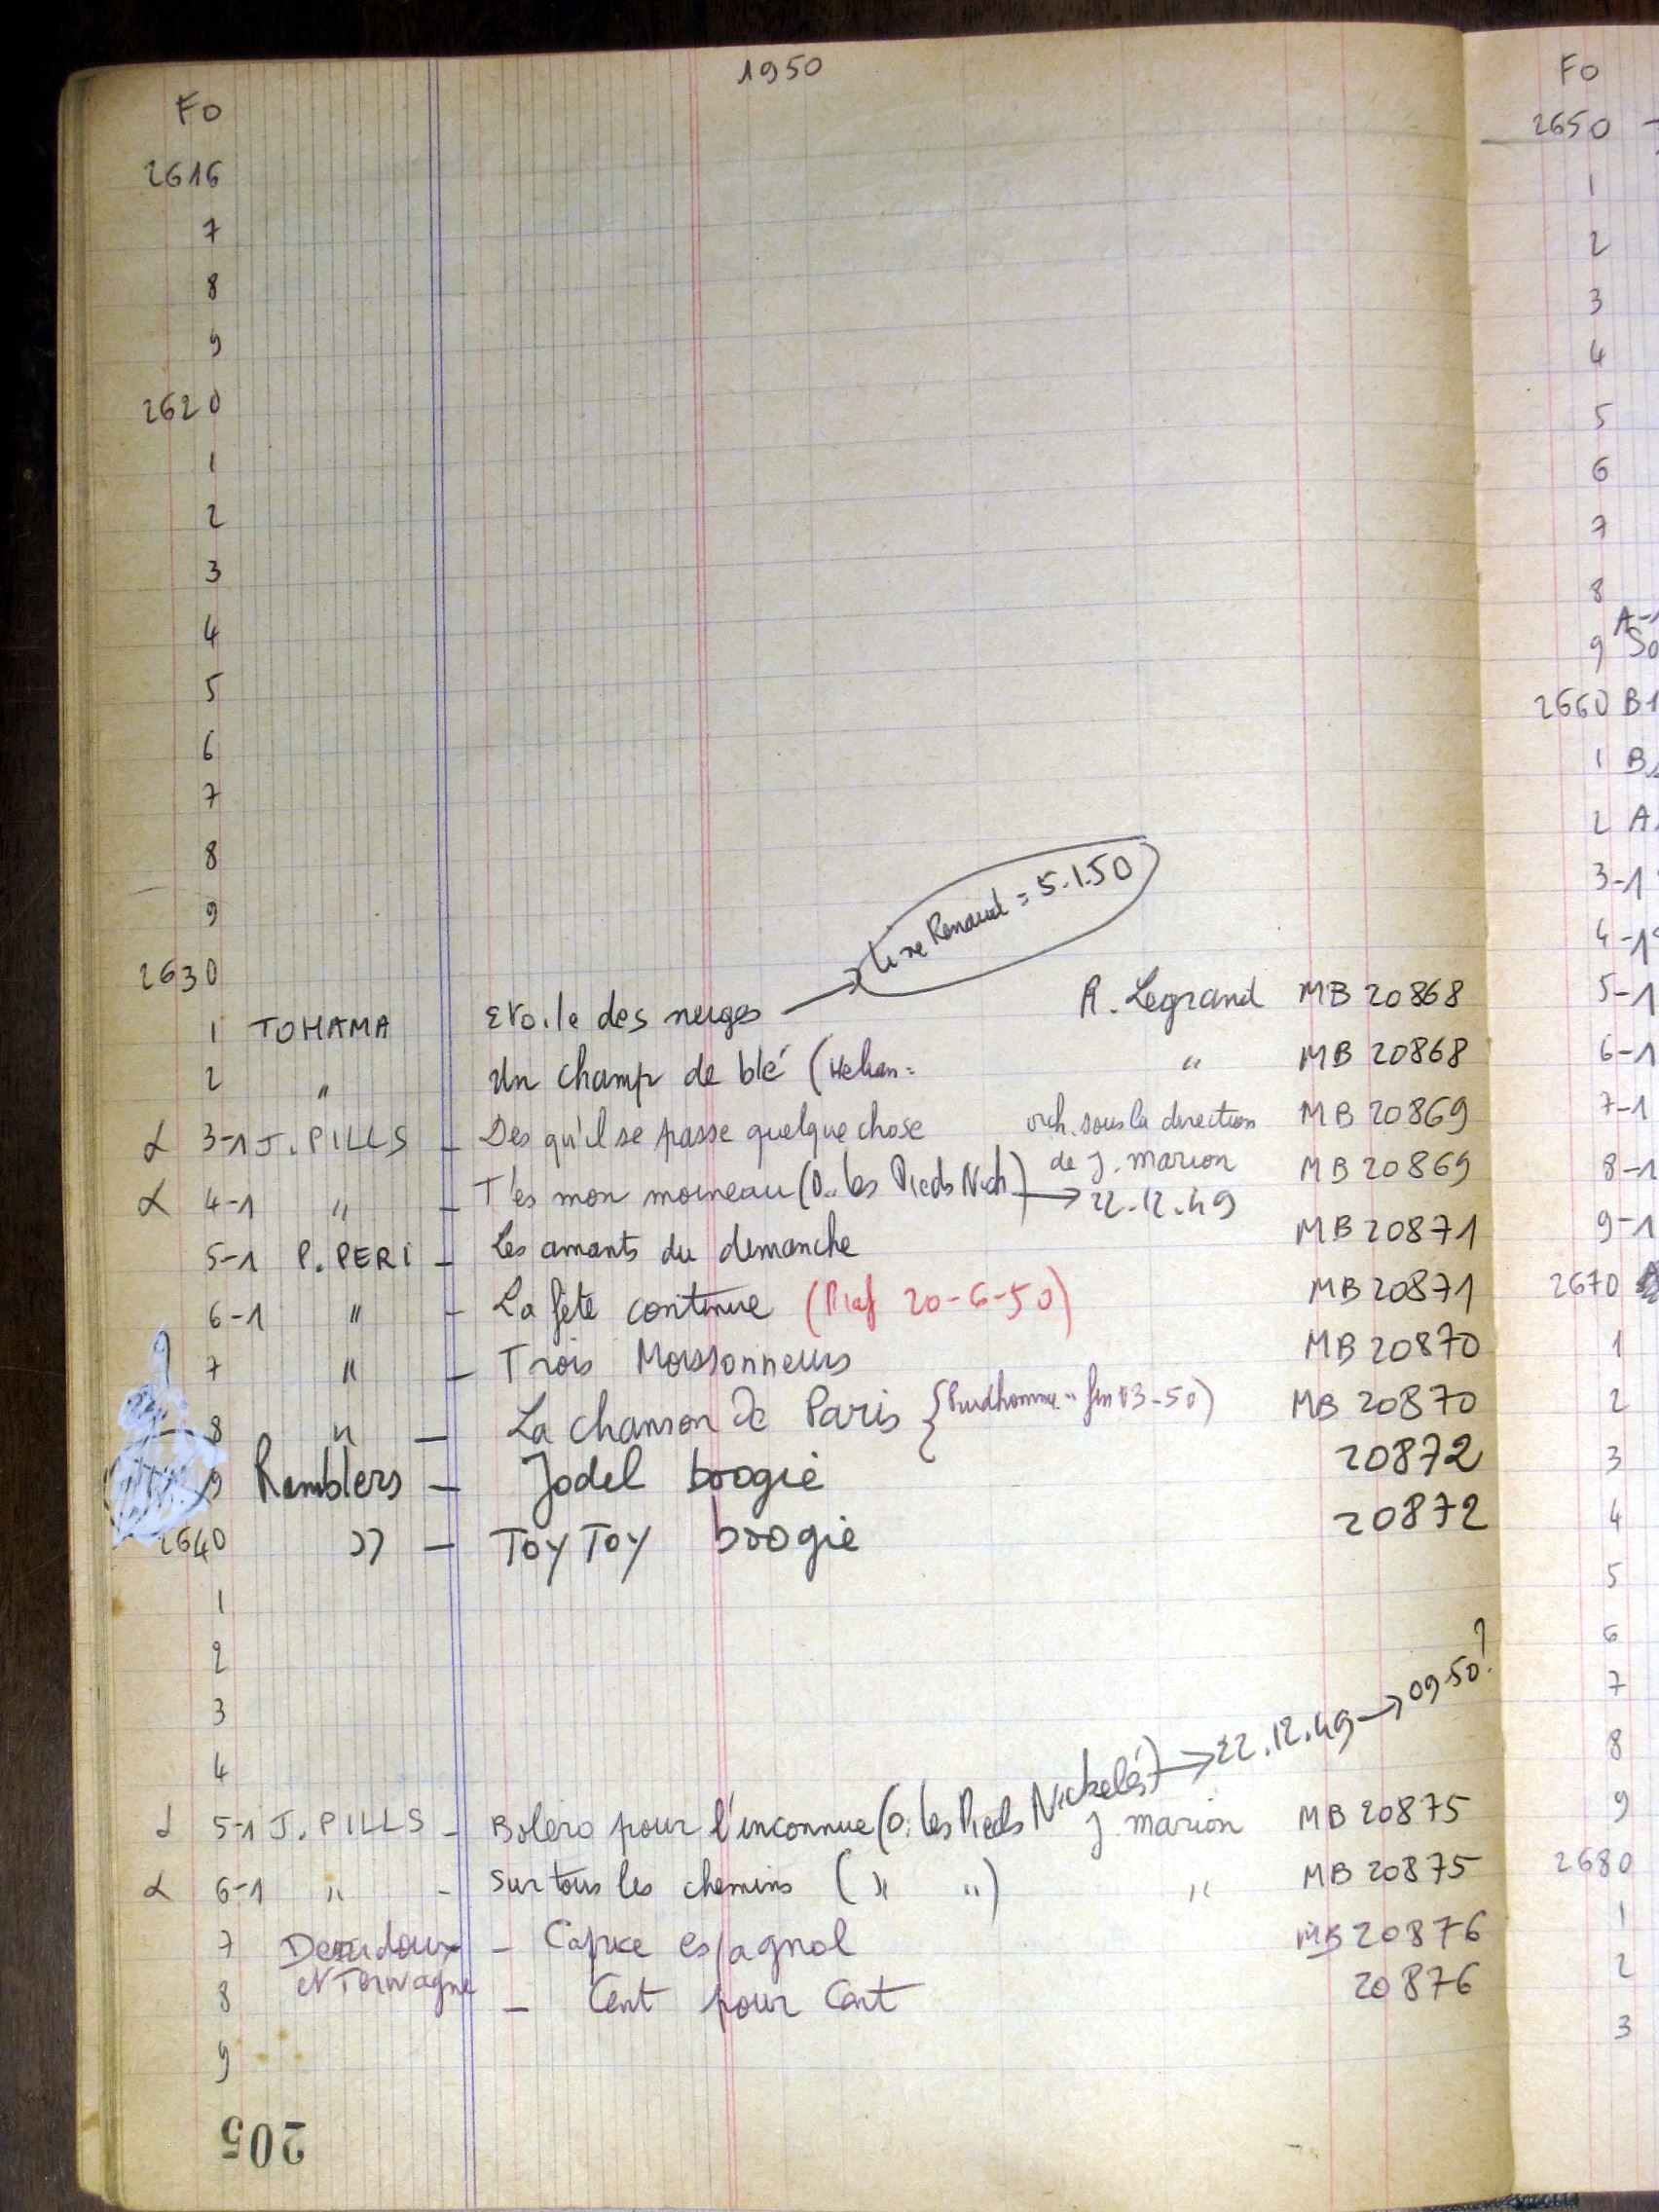 1950
Fo
2616
7
8
9
2620
1
2
3
4
5
6
7
8
9
2630
Line Renaud = 5.1.50
1 TOHAMA Etoile des neiges → R. Legrand MB 20868
2 " Un champ de blé ( " MB 20868
α 3-1 J. PILLS - Des qu'il se passe quelque chose orch. sous la direction MB 20869
de J. Marion
α 4-1 " - T'es mon moineau (O. les Pieds Nich) → 22.12.49 MB 20869
5-1 P. PERI - Les amants du dimanche MB 20871
6-1 " - La fête continue (Piaf 20-6-50) MB 20871
7 " - Trois Moissonneurs MB 20870
8 " - La chanson de Paris {Prudhomme = fin 03-50) MB 20870
9 Ramblers - Jodel boogie 20872
2640 " - Toy Toy boogie 20872
1
2
3
4
α 5-1 J. PILLS - Boléro pour l'inconnue (O. les Pieds Nickelés) → 22.12.49 → 09.50? J. Marion MB 20875
α 6-1 " - Sur tous les chemins ( " " ) " MB 20875
7 Deaudoux - Caprice espagnol MB 20876
et Terwagne
8 - Cent pour Cent 20876
9
205
Fo
2650
1
2
3
4
5
6
7
8
A-1
9 So
2660 B1
1 B
2 A
3-1
4-1
5-1
6-1
7-1
8-1
9-1
2670
1
2
3
4
5
6
7
8
9
2680
1
2
3